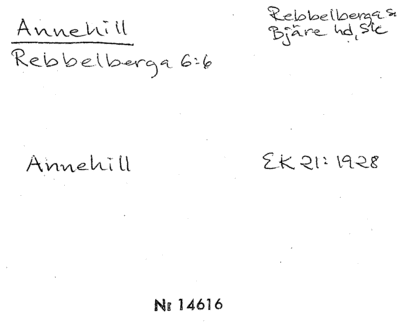 Annehill
Rebbelberga s
Bjäre hd, Sk
Rebbelberga 6:6
Annehill
EK 21: 1928
Nr 14616